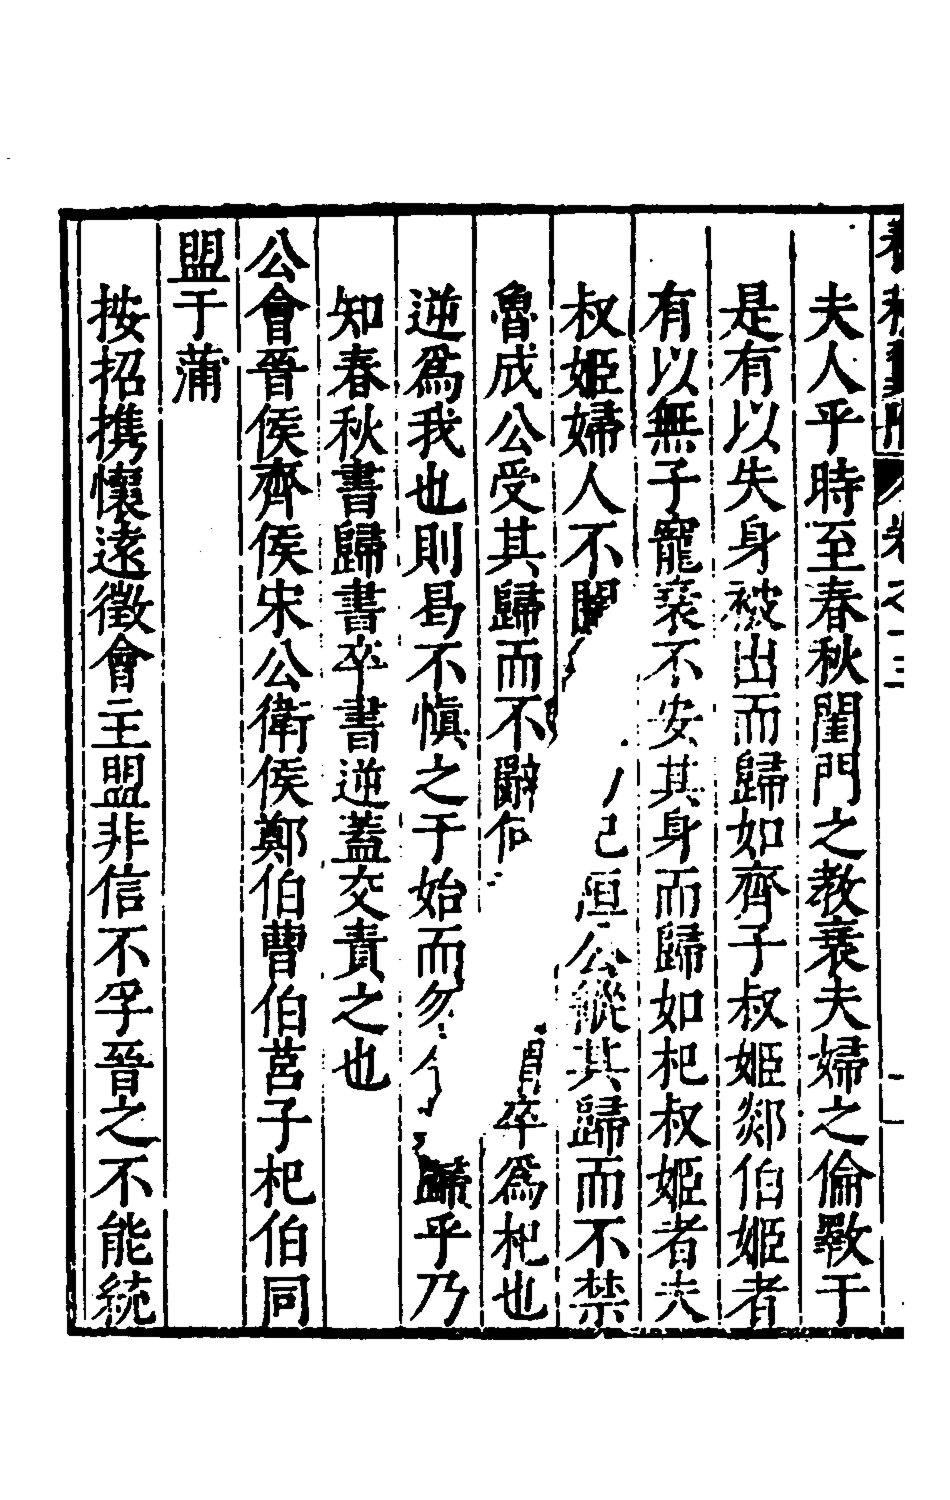 夫人乎時至春秋閨門之教衰夫婦之倫斁于
是有以失身被出而歸如齊子叔姬郯伯姬者
有以無子寵衰不安其身而歸如杞叔姬者夫
叔姬婦人不桓公縱其歸而不禁
魯成公受其歸而不辭卒爲杞也
逆爲我也則曷不愼之于始而歸乎乃
知春秋書歸書卒書逆蓋交責之也
公會晉侯齊侯宋公衛侯鄭伯曹伯莒子杞伯同
盟于蒲
按招携懷遠徵會主盟非信不孚晉之不能統